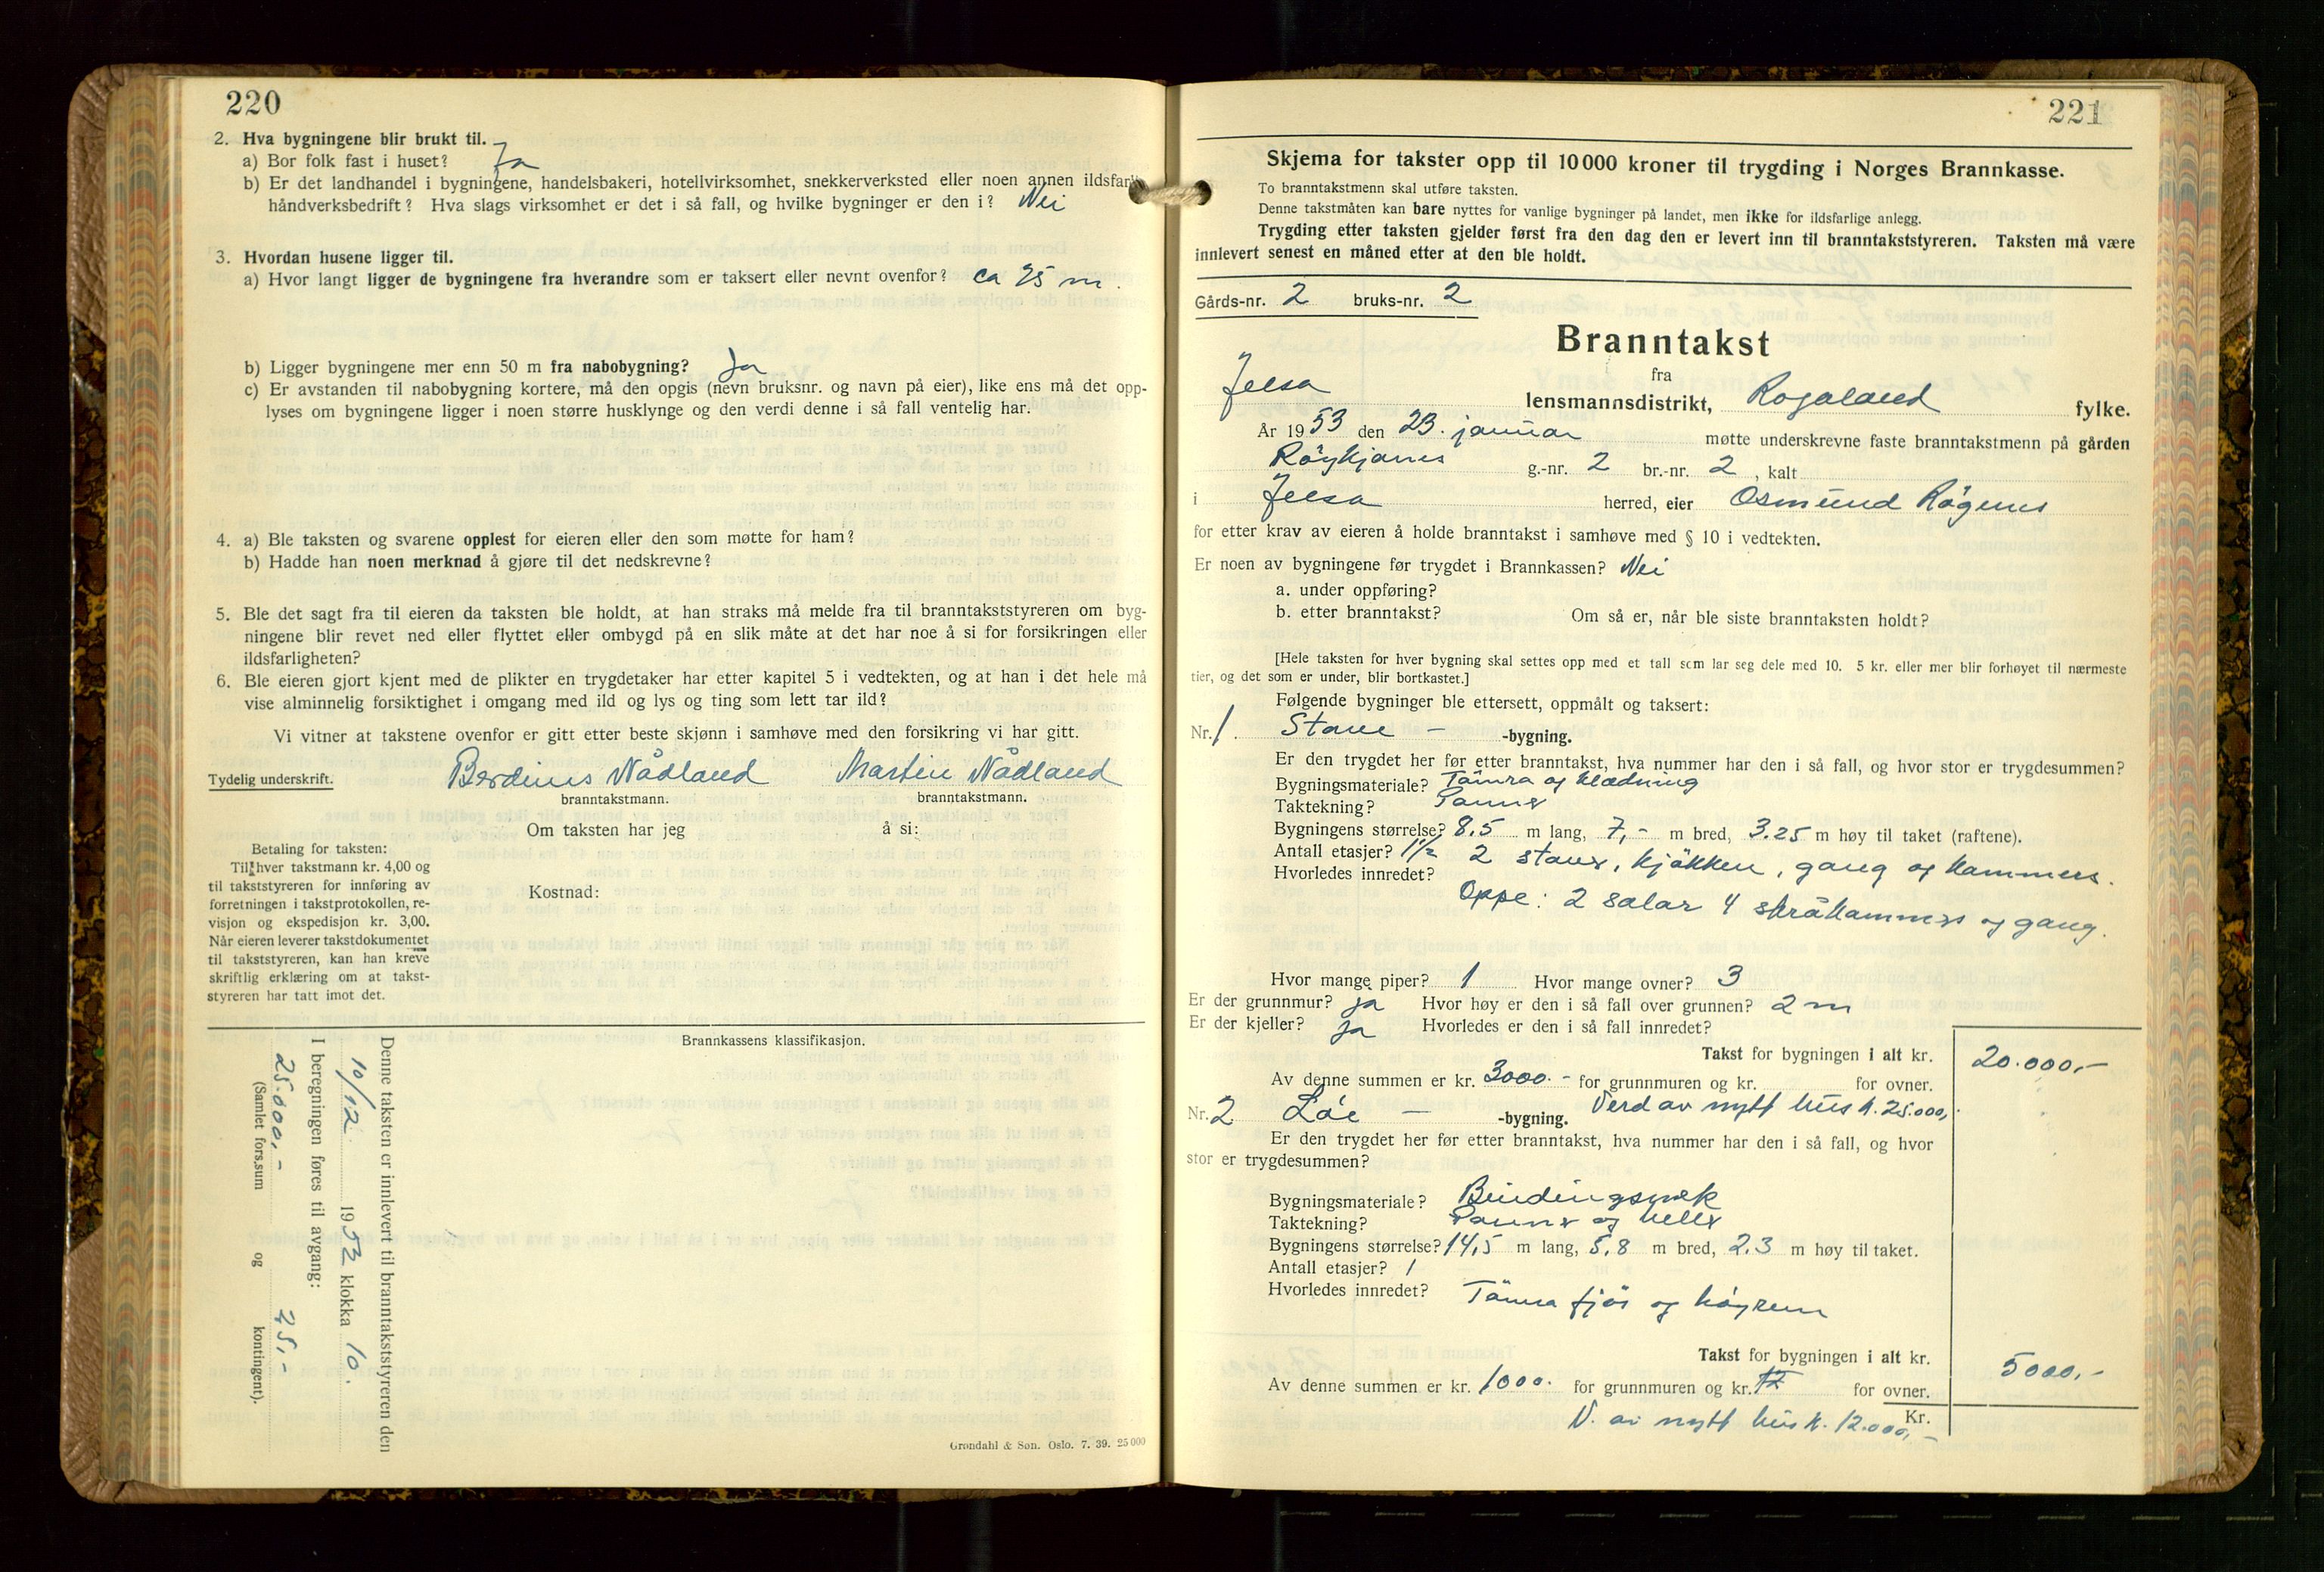 220
2. Hva bygningene blir brukt til.
a) Bor folk fast i huset? Ja
b) Er det landhandel i bygningene, handelsbakeri, hotellvirksomhet, snekkerverksted eller noen annen ildsfarlig
håndverksbedrift? Hva slags virksomhet er det i så fall, og hvilke bygninger er den i? Nei
3. Hvordan husene ligger til.
a) Hvor langt ligger de bygningene fra hverandre som er taksert eller nevnt ovenfor? ca 75 m.
b) Ligger bygningene mer enn 50 m fra nabobygning? Ja
c) Er avstanden til nabobygning kortere, må den opgis (nevn bruksnr. og navn på eier), like ens må det opp-
lyses om bygningene ligger i noen større husklynge og den verdi denne i så fall ventelig har.
4. a) Ble taksten og svarene opplest for eieren eller den som møtte for ham?
b) Hadde han noen merknad å gjøre til det nedskrevne?
5. Ble det sagt fra til eieren da taksten ble holdt, at han straks må melde fra til branntakststyreren om byg-
ningene blir revet ned eller flyttet eller ombygd på en slik måte at det har noe å si for forsikringen eller
ildsfarligheten?
6. Ble eieren gjort kjent med de plikter en trygdetaker har etter kapitel 5 i vedtekten, og at han i det hele må
vise alminnelig forsiktighet i omgang med ild og lys og ting som lett tar ild?
Vi vitner at takstene ovenfor er gitt etter beste skjønn i samhøve med den forsikring vi har gitt.
Tydelig underskrift. Berdines Nådland Martin Nådland
branntakstmann. branntakstmann.
Om taksten har jeg å si:
Betaling for taksten:
Til hver takstmann kr. 4,00 og
til takststyreren for innføring av
forretningen i takstprotokollen, re-
visjon og ekspedisjon kr. 3,00.
Når eieren leverer takstdokumentet
til takststyreren, kan han kreve
skriftlig erklæring om at takst-
styreren har tatt imot det.
Kostnad:
Brannkassens klassifikasjon.
Denne taksten er innlevert til branntakststyreren den
10/12 1953 klokka 10.
I beregningen føres til avgang:
25.000,- 25,-
(Samlet fors.sum og kontingent).
Grøndahl & Søn. Oslo. 7. 39. 25 000
221
Skjema for takster opp til 10 000 kroner til trygding i Norges Brannkasse.
To branntakstmenn skal utføre taksten.
Denne takstmåten kan bare nyttes for vanlige bygninger på landet, men ikke for ildsfarlige anlegg.
Trygding etter taksten gjelder først fra den dag den er levert inn til branntakststyreren. Taksten må være
innlevert senest en måned etter at den ble holdt.
Gårds-nr. 2 bruks-nr. 2
Branntakst
fra
Jelsa lensmannsdistrikt, Rogaland fylke.
År 1953 den 23. januar møtte underskrevne faste branntakstmenn på gården
Röykjanes g.-nr. 2 br.-nr. 2, kalt
i Jelsa herred, eier Osmund Rögenes
for etter krav av eieren å holde branntakst i samhøve med § 10 i vedtekten.
Er noen av bygningene før trygdet i Brannkassen? Nei
a. under oppføring?
b. etter branntakst? Om så er, når ble siste branntaksten holdt?
[Hele taksten for hver bygning skal settes opp med et tall som lar seg dele med 10. 5 kr. eller mer blir forhøyet til nærmeste
tier, og det som er under, blir bortkastet.]
Følgende bygninger ble ettersett, oppmålt og taksert:
Nr. 1. Stove - -bygning.
Er den trygdet her før etter branntakst, hva nummer har den i så fall, og hvor stor er trygdesummen?
Bygningsmateriale? Tömra og klædning
Taktekning? Panner
Bygningens størrelse? 8.5 m lang, 7,- m bred, 3.25 m høy til taket (raftene).
Antall etasjer? 1 1/2
Hvorledes innredet? 2 stover, kjökken, gang og kammers.
Oppe: 2 salar 4 skråkammers og gang.
Hvor mange piper? 1 Hvor mange ovner? 3
Er der grunnmur? ja Hvor høy er den i så fall over grunnen? 2 m
Er der kjeller? ja Hvorledes er den i så fall innredet?
Takst for bygningen i alt kr. 20.000,-
Av denne summen er kr. 3000.- for grunnmuren og kr. for ovner.
Verd av nytt hus k. 25.000,-
Nr. 2 Löe - -bygning.
Er den trygdet her før etter branntakst, hva nummer har den i så fall, og hvor
stor er trygdesummen?
Bygningsmateriale? Bindingsverk
Taktekning? Panner og heller
Bygningens størrelse? 14,5 m lang, 5,8 m bred, 2,3 m høy til taket.
Antall etasjer? 1
Hvorledes innredet? Tömra fjös og höyrum
Takst for bygningen i alt kr. 5000,-
Av denne summen er kr. 1000. for grunnmuren og kr. for ovner.
Kr.
V. av nytt hus k. 12.000,-